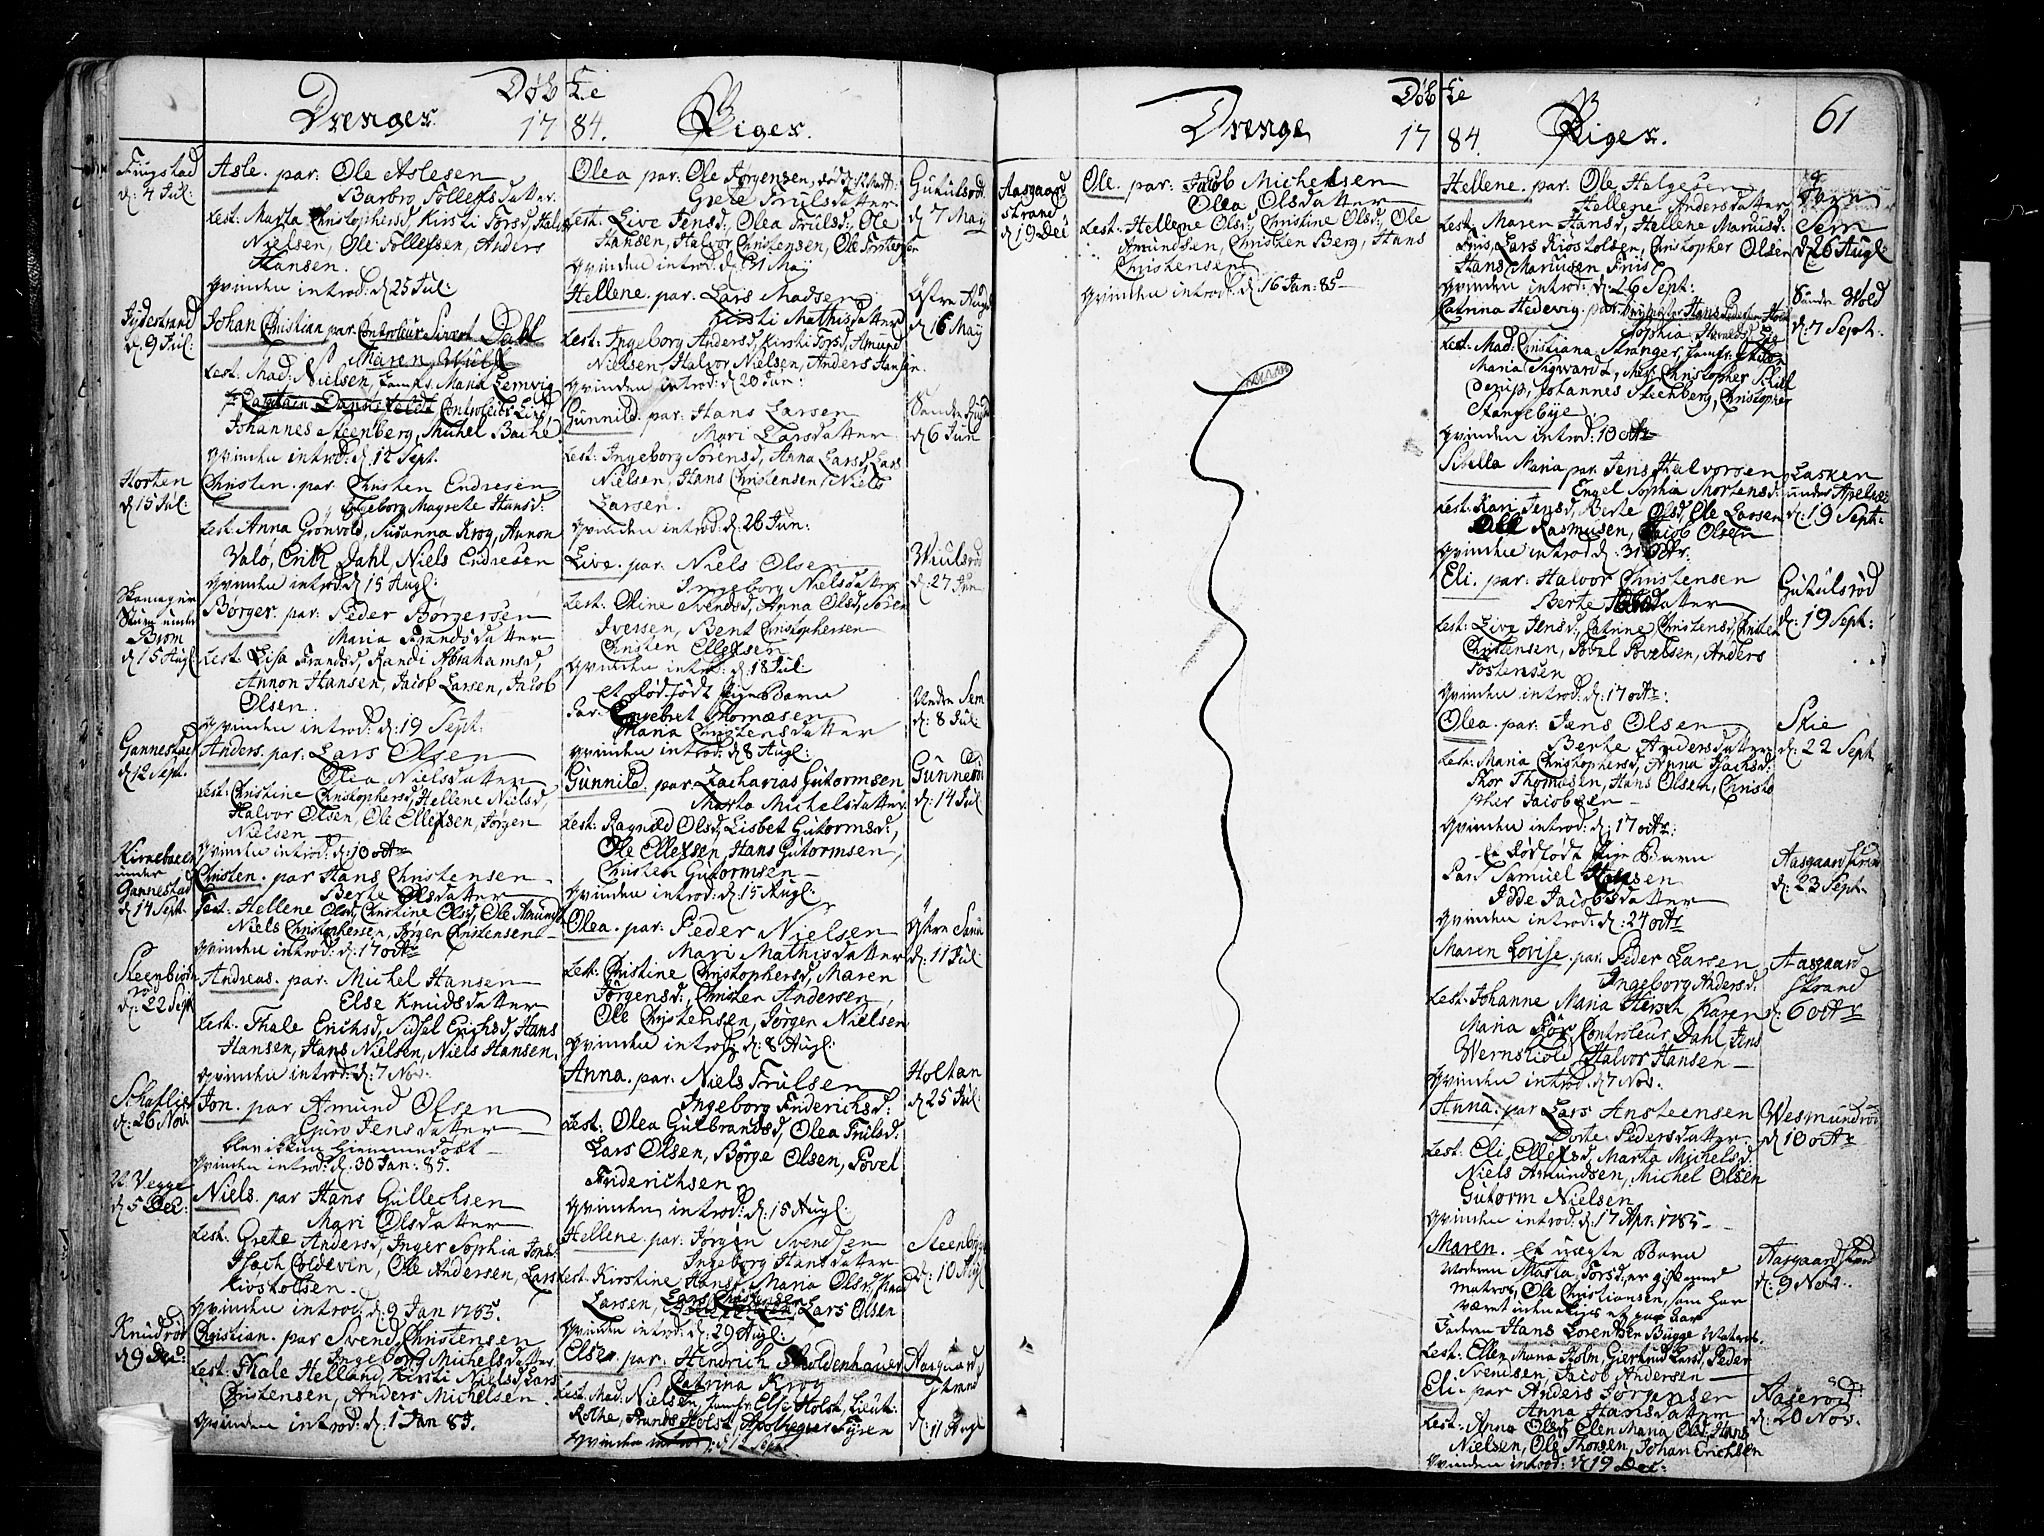 Døbte
Drenger. 1784. Piger.
Fugstad
d: 4 Jul:
Asle. par: Ole Aslesen
Barbro Tollefsdatter
test: Marta Christophersd, Kirsti Torsd, Halvor
Nielsen, Ole Tollefsen, Anders
Hansen.
Qvinden introd: d: 25 Jul:
d: 9 Jul:
Johan Christian par: Controleur Sivert Dahl
Maren Wulf
test: Mad: Nielsen, Jomf: Maria Lemvig
Johannes Steenberg, Michel Bache
Qvinden introd: d: 12 Sept.
Horten
d: 15 Jul:
Christen. par: Christen Endresen
Ingeborg Magrete Hansd:
test: Anna Grönvold, Susanna Krog, Annon
Valö, Erik Dahl, Niels Endresen
Qvinden introd: d: 15 Augl:
under
Brom
d: 15 Augl
Börger. par: Peder Börgersen
Maria Frandsdatter
test: Lisa Frandsd, Randi Abrahamsd,
Annon Hansen, Jacob Larsen, Jacob
Olsen.
Qvinden introd: d: 19 Sept.
Gannestad
d: 12 Sept.
Anders. par: Lars Olsen
Olia Nielsdatter
test: Christine Christophersd, Hellene Nielsd,
Halvor Olsen, Ole Ellefsen, Jörgen
Nielsen
Qvinden introd: d: 10 octr
under
Gannestad
d: 14 Sept.
Christen. par Hans Christensen
Berte Olsdatter
Test: Hellene Olsd, Christine Olsd, Ole Amunds
Niels Christophersen, Jörgen Christensen
Qvinden introd: d: 17 octr
Steenbiörn
röd
d: 22 Sept
Andreas. par: Michel Hansen
Else Knudsdatter
test: Thale Erichsd, Sidsel Erichsd, Hans
Hansen, Hans Nielsen, Niels Hansen.
Qvinden introd: d: 7 Nov.
d: 26 Nov.
Jon. par Amund Olsen
Guro Jensdatter
blev ikkun hiemmedøbt
Qvinden introd: d: 30 Jan: 85.
N Vegge
d: 5 Dec:
Niels. par Hans Gullechsen
Mari Olsdatter
test: Grete Andersd, Inger Sophia Jons
Isach Coldevin, Ole Andersen, Lars
Kiostolsen.
Qvinden introd. d: 9 Jan 1785.
Knudröd
d: 9 Dec:
Christian. par Svend Christensen
Ingeborg Michelsdatter
test: Thale Helland, Kirsti Nielsd, Lars
Christensen, Anders Michelsen.
Qvinden introd: d: 1 Jan 85.
Olea par: Ole Jörgensen,
Grete Trulsdatter
test: Live Jensd:, Olea Trulsd:, Ole
Hansen, Halvor Christensen, Ole Torstensen
Qvinden introd: d: 31 May
Gutulsröd
d: 7 May
Hellene. par: Lars Madsen
Kirsti Mathisdatter
test: Ingeborg Andersd, Kirsti Torsd, Amund
Nielsen, Halvor Nielsen, Anders Hansen.
Qvinden introd: d: 20 Jun:
d: 16 May
Gunnild. par: Hans Larsen
Mari Larsdatter
test: Ingeborg Sörensd, Anna Larsd, Lars
Nielsen, Hans Christensen, Niels
Larsen.
Qvinden introd: d: 26 Jun:
d: 6 Jun
Live. par: Niels Olsen
Ingeborg Nielsdatter
test: Oline Svendsd, Anna Olsd, Sören
Iversen, Bent Christophersen
Christen Ellefsen
Qvinden introd: d: 18 Jul:
d: 27 Jun
Et dødfødt Pige Barn
Par: Engebret Thomæsen
Maria Christensdatter
Qvinden introd: d: 8 Augl:
Nedre Sem
d: 8 Jul:
Gunnild. par: Zacharias Gutormsen
Marta Michelsdatter
test: Ragnæd Olsd, Lisbet Gutormsd:,
Ole Ellefsen, Hans Gutormsen,
Christen Gutormsen
Qvinden introd: d: 15 Augl:
d: 14 Jul
Olea. par: Peder Nielsen
Mari Mathisdatter
test: Christine Christophersd, Maren
Jörgensd:, Christen Andersen,
Ole Christensen, Jörgen Nielsen
Qvinden introd: d: 8 Augl:
d: 11 Jul
Anna. par: Niels Trulsen
Ingeborg Friderichsd:
test: Olea Gulbrandsd, Olea Trulsd:
Lars Olsen, Börge Olsen, Povel
Friderichsen
Qvinden introd: d: 15 Augl:
Holtan
d: 25 Jul:
Hellene. par: Jörgen Svendsen
Ingeborg Hansdatter
test: Kirstine Hansd, Maria Olsd,
Larsen, Lars Christensen, Lars Olsen
Qvinden introd: d: 29 Augl:
d: 10 Augl
Else. par: Hendrich Moldenhauer
Catrina Krog
test: Mad. Nielsen, Jomfr: Else Holst, Lieut:
Rothe, Frands Holst, Apotheqver Fyren
Aasgaard
strand
d: 11 Augl
Døbte
Drenge 1784. Piger. 61
Aasgaard
strand
d: 19 Dec
Ole. par: Jacob Michelsen
Olea Olsdatter
test: Hellene Olsd:, Christine Olsd:, Ole
Amundsen, Christen Berg, Hans
Christensen
Qvinden introd: d: 16 Jan: 85
Hellene. par: Ole Halgesen
Hellene Andersdatter
test: Maren Hansd, Hellene Mariusd:
Friis, Lars Kiostolsen, Christopher Olsen
Hans Mariusen Friis
Qvinden introd: d: 26 Sept:
Sem
d: 26 Augl:
Catrina Hedevig. par:
test: Mad. Christiana Stranger, Jomfr:
Maria Sigwardt, Mr: Christopher Skiel
derup, Johannes Stechberg, Christopher
Stangebye.
Qvinden introd: 10 octr
Søndre Wold
d: 7 Sept.
Sibella Maria par. Jens Halvorsen
Engel Sophia Mortensd:
test: Kari Jensd, Berte Olsd, Ole Larsen
Rasmusen, Jacob Olsen
Qvinden introd: d: 31 Octr.
Løkken
under Apelnæs
d: 19 Sept:
Eli. par: Halvor Christensen
test: Live Jensd:, Catrine Christensd, Christen
Christensen, Povel Povelsen, Anders
Tostensen
Qvinden introd: d: 17 octr:
Gutulsröd
d: 19 Sept:
Olea. par: Jens Olsen
Berte Andersdatter
test: Maria Christophersd, Anna Isachsd:
Thor Thomæsen, Hans Olsen, Christo
pher Jacobsen
Qvinden introd: d: 17 octr:
Skie
d: 22 Sept
Et dødfødt Pige Barn
Par: Samuel Hansen
Idde Jacobsdatter
Qvinden introd: d: 24 octr
Aasgaardstrand
d: 23 Sept.
Maren Lovise. par: Peder Larsen
Ingeborg Andersd.
test: Johanne Maria Hersch, Karen
Maria Controleur Dahl, Jens
Wernskiold, Halvor Hansen
Qvinden introd: d 7 Nov.
Aasgaard
strand
d: 6 octr
Anna. par Lars Ansteensen
Dorte Pedersdatter
test: Eli Ellefsd, Marta Michelsd.
Niels Amundsen, Michel Olsen
Gutorm Nielsen
Qvinden introd: d: 17 Apr: 1785
Wesmundröd
d: 10 octr
Maren. Et uægte Barn
Moderen Marta Torsd, er gift med
Matros, Ole Christiansen, som har
været udenlands et par Aar
Faderen Hans Lorentzen Bugge Matros.
test. Ellen Maria Holm, Giertrud Larsd, Peder
Svendsen, Jacob Andersen
Aasgaardstrand
d: 9 Nov.
Eli. par Anders Jörgensen
Anna Hansdatter
test: Anna Olsd, Elen Maria Olsd, Hans
Nielsen, Ole Thorsen, Johan Erichsen
Qvinden introd: d: 19 Dec:
Aaseröd
d: 20 Nov.